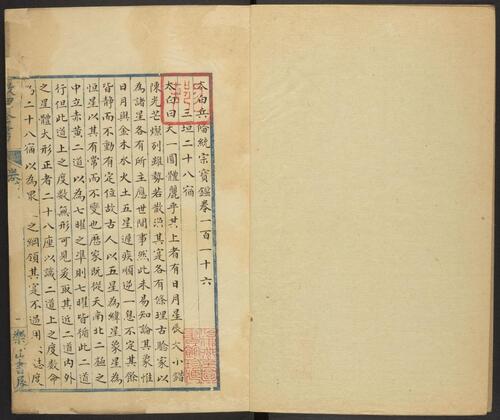 太白兵備統宗寶鑑卷一百一十六
三垣二十八宿
太白曰天一圓體麗乎其上者有日月星辰大小錯
陳光芒爛列雖勢若散渙其定各有條理古驗家以
為諸星各有所主應世間事然此未易知論其象惟
日月與金木水火土五星遲疾順逆一息不定其餘
皆靜而不動有定位故古人以五星為緯星象星為
恒星以其有常而不變也曆家既從天南北二極之
中立赤黃二道以為七曜之準則七曜皆循此二道
行但此道上之度數無形可見爰取其近二道內外
之星體大形正者二十八座以識二道上之度數命
二十八宿以為眾之綱領其定不過用誌度
樂山書屋